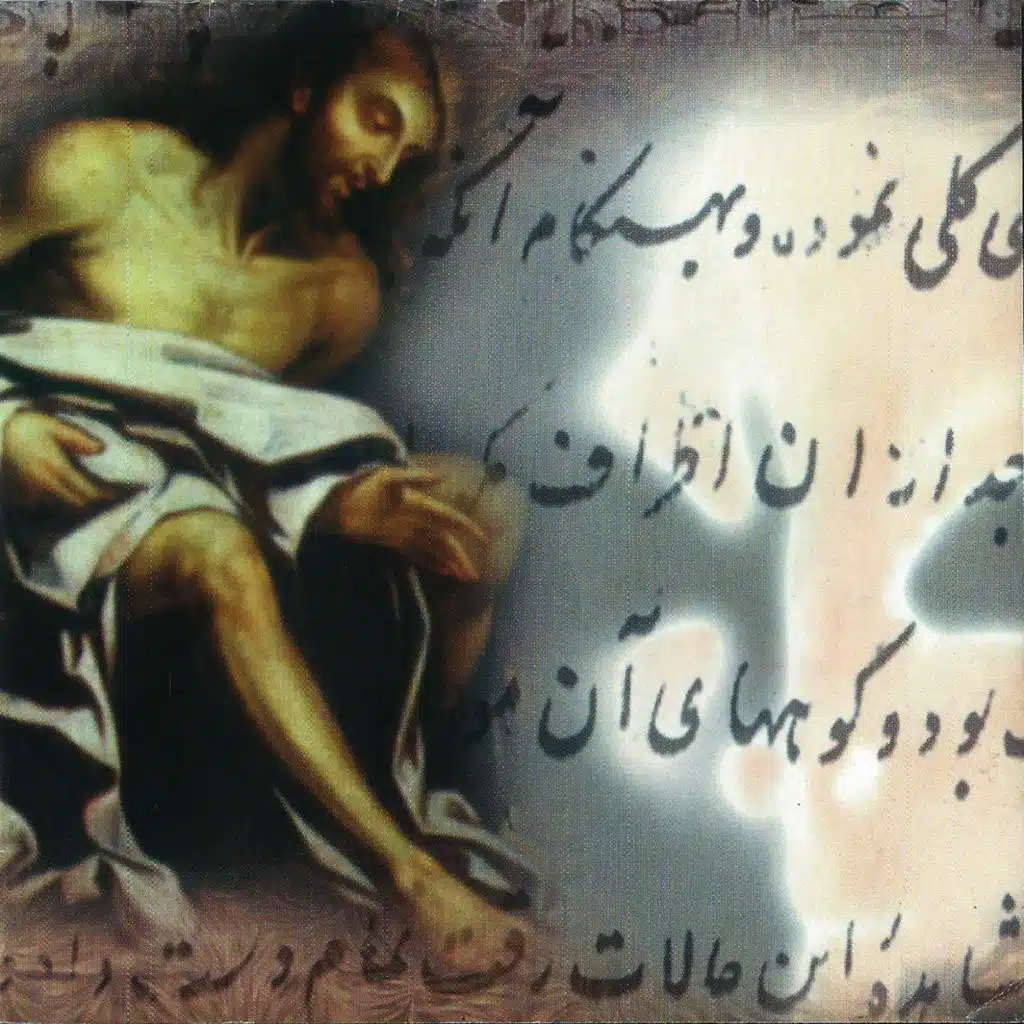 ی کلی نموده و بهنگام آنکه
ازان اطراف
بود و کوههای آن
شاهدهٔ این حالات رقت تمام درست داد